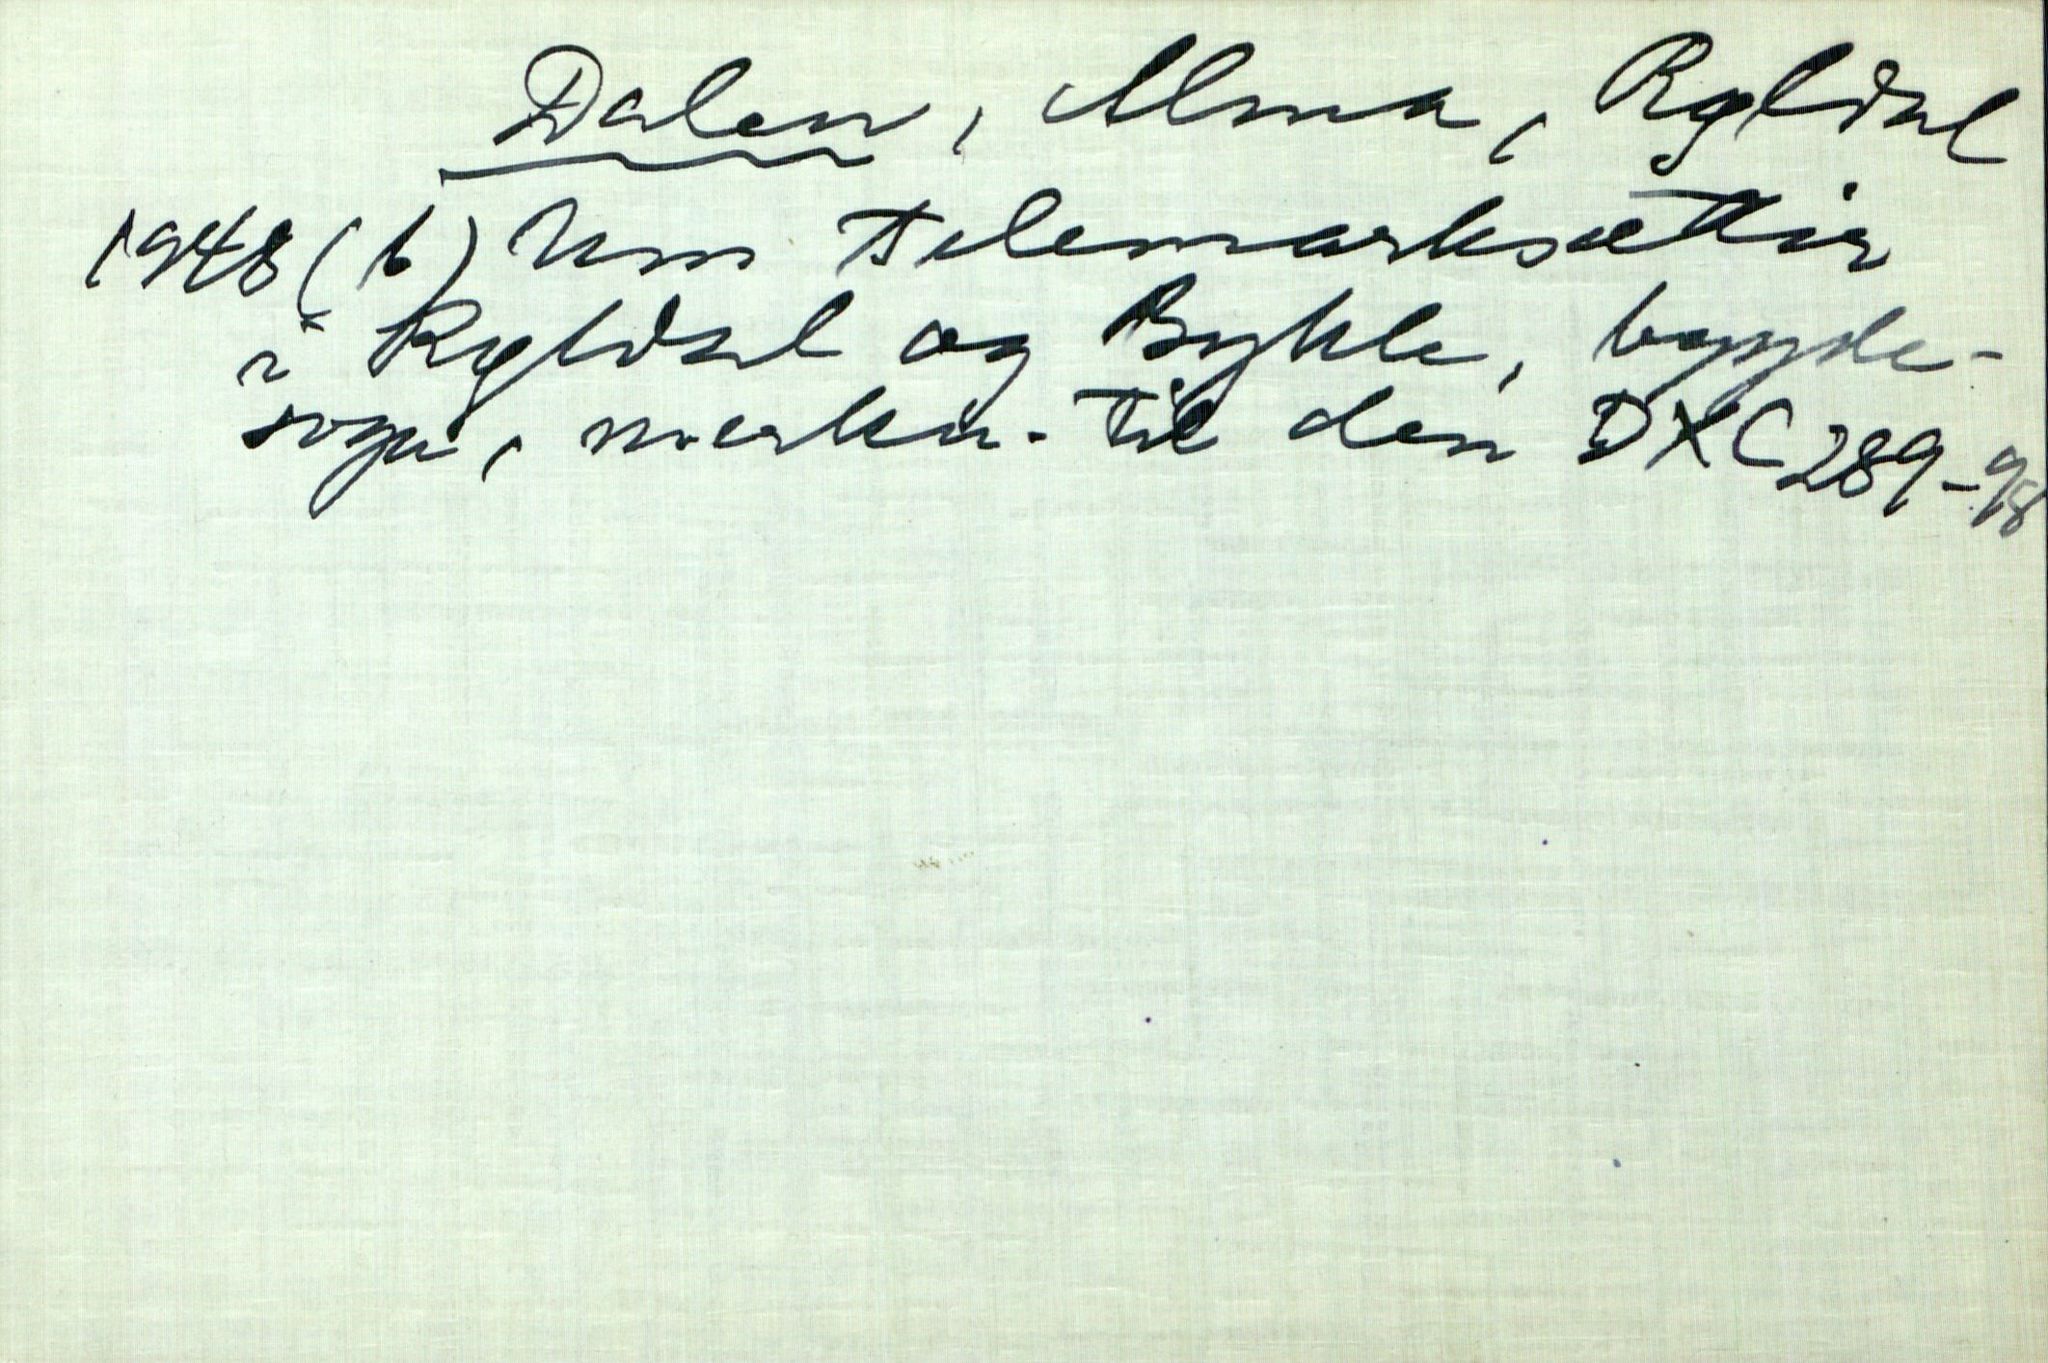 Dalen, Alma, Ryldal
1948 (b) Um Telemarksættir
i Ryldal og Bykle, bygde-
soge, merkn. til den DXC 289-98